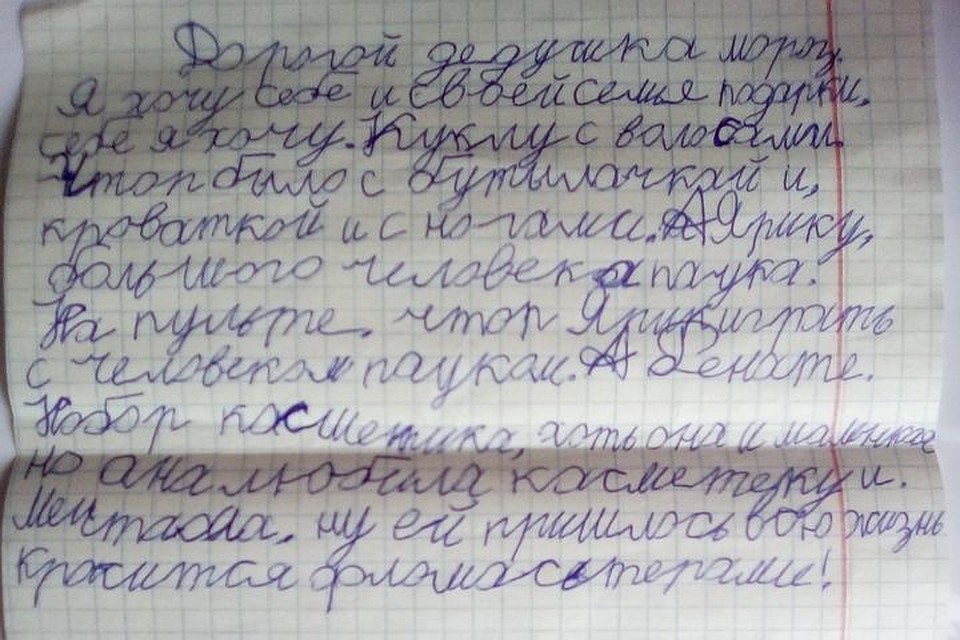 Дорогой дедушка мороз.
Я хочу себе и своей семье подарки.
себе я хочу. Куклу с волосами.
Чтоп было с бутылачкай и,
кроваткой и с ногами. А Ярику,
большого человека паука.
На пульте. чтоп Ярик играть
с человеком пауком. А Ренате.
Набор касметика, хоть она и маленькая
но она любила касметеку и.
Мечтаола. ну ей пришлось всю жизнь
красится фломасьтерами!